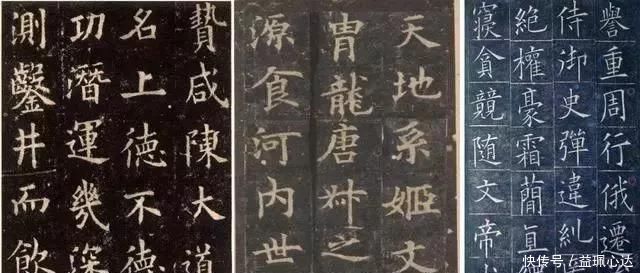 贄咸陳大道
名上德不德
功潛運幾深
測鑿井而飲
天地系姬文
冑龍唐叔之
源食河內世
譽重周行俄遷
侍御史彈違糺
絕權豪霜簡直
寢貪競随文帝
快传号/益珮心达